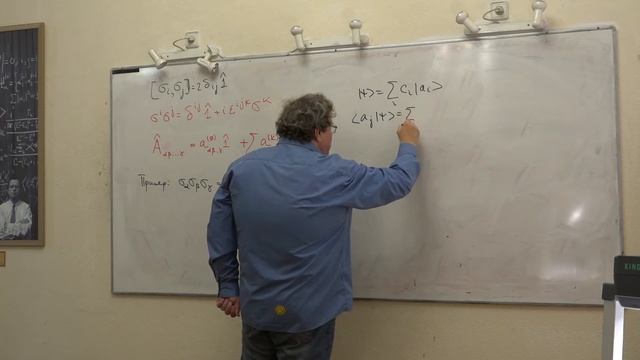 [σᵢ, σⱼ] = 2δᵢⱼ 1̂
σⁱσʲ = δⁱʲ 1̂ + i εⁱʲᵏ σᵏ
Â = a⁽⁰⁾ 1̂ + ∑ a⁽ᵏ⁾
Пример: σ_α σ_β σ_γ =
|ψ> = ∑ᵢ cᵢ |aᵢ>
<aⱼ|ψ> = ∑
KIND